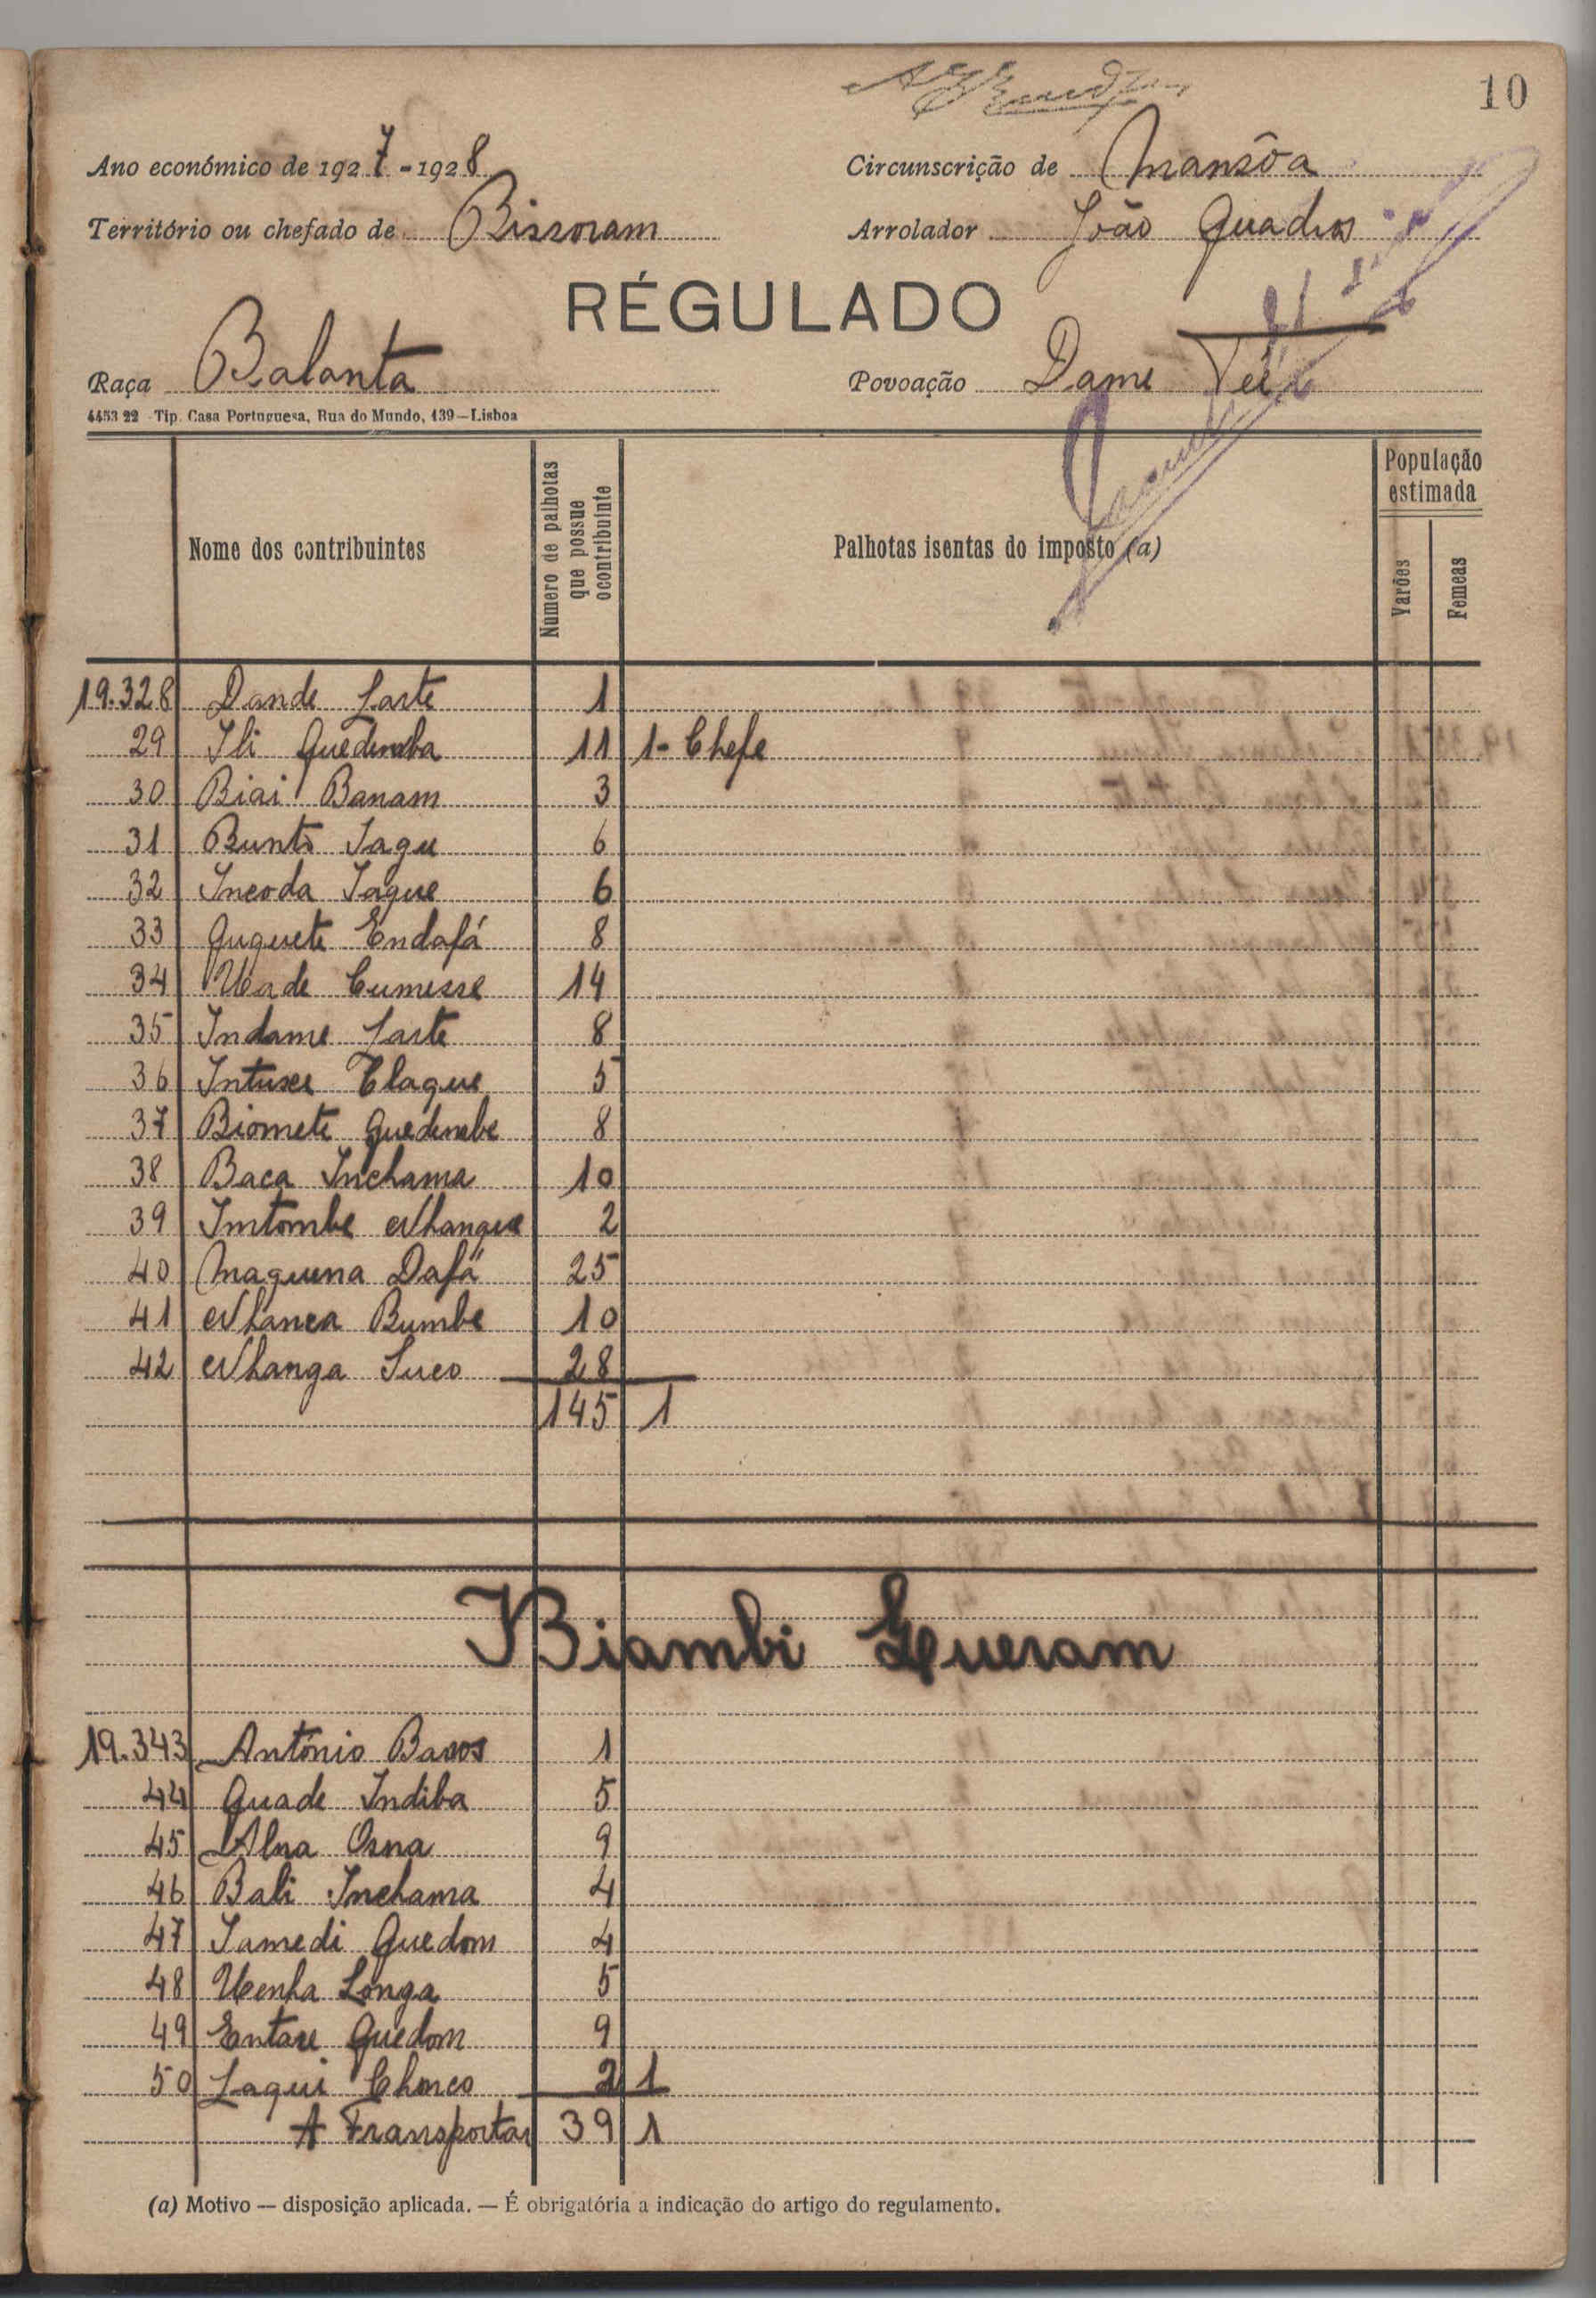 10
Ano económico de 1927-1928
Circunscrição de Mansôa
Território ou chefado de Bissoram
Arrolador João Quadros
RÉGULADO
Raça Balanta
Povoação Dame
4453 22 Tip. Casa Portuguesa, Rua do Mundo, 139—Lisboa
Nome dos contribuintes
Numero de palhotas que possue ocontribuinte
Palhotas isentas do imposto (a)
População estimada
Varões
Femeas
19.328 Dande Larte 1
29 Ili Quedemba 11 1-Chefe
30 Biai Banam 3
31 Bunto Iagu 6
32 Incoda Iague 6
33 Ququete Endafá 8
34 Uade Cumesse 14
35 Indame Larte 8
36 Clague 5
37 Biomete Quedembe 8
38 Baca Inchama 10
39 Imtombe Nhangue 2
40 Maguena Dafá 25
41 Nhanca Bumbe 10
42 Nhanga Suco 28
145 1
Biambi Gueram
19.343 António Barros 1
44 Quade Indiba 5
45 Alna Osna 9
46 Bali Inchama 4
47 Samedi Quedom 4
48 Uenha Longa 5
49 Entare Quedom 9
50 Laqui 2 1
A Transportar 39 1
(a) Motivo — disposição aplicada. — É obrigatória a indicação do artigo do regulamento.